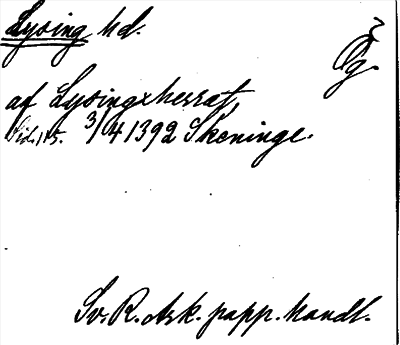 Lysing hd.
Ög.
af Lysingxherrat
Sid. 115. 3/4 1392 Skeninge.
Sv. R. Ark. papp. handl.